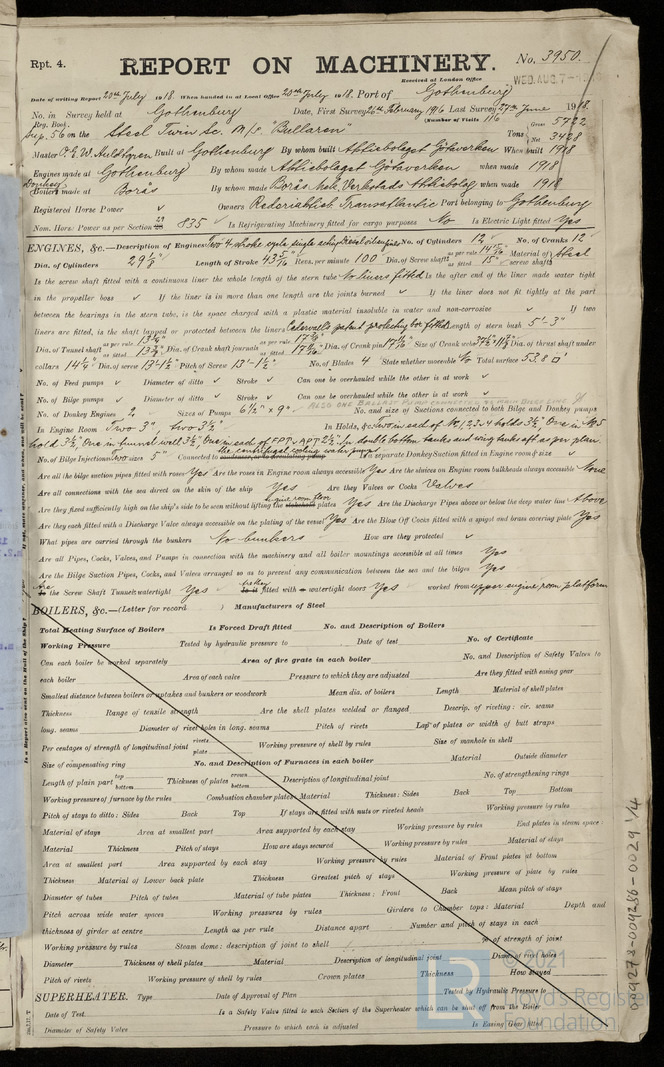 Rpt. 4.
REPORT ON MACHINERY.
No. 3950.
Received at London Office
WED. AUG. 7-
Date of writing Report 20th July 1918. When handed in at Local Office 20th July 1918. Port of Gothenburg
No. in Survey held at Gothenburg Date, First Survey 26th February 1916 Last Survey 27th June 1918.
Reg. Book. (Number of Visits 116)
Sup. 56 on the Steel Twin Sc. M/S. "Bullaren" Tons Gross 5722 Net 3428
Master O. E. W. Hultgren Built at Gothenburg By whom built Aktiebolaget Götaverken When built 1918
Engines made at Gothenburg By whom made Aktiebolaget Götaverken when made 1918
Donkey Boilers made at Borås By whom made Borås Mek. Verkstads Aktiebolag when made 1918
Registered Horse Power ✓ Owners Rederiaktieb. Transatlantic Port belonging to Gothenburg
Nom. Horse Power as per Section 28 835 ✓ Is Refrigerating Machinery fitted for cargo purposes No Is Electric Light fitted Yes
ENGINES, &c.—Description of Engines Two 4 stroke cycle single acting Diesel oil engines No. of Cylinders 12 No. of Cranks 12
Dia. of Cylinders 29 1/8 Length of Stroke 43 5/16" Revs. per minute 100 Dia. of Screw shaft as per rule 14 5/16" as fitted 15" Material of screw shaft Steel
Is the screw shaft fitted with a continuous liner the whole length of the stern tube No liners fitted Is the after end of the liner made water tight
in the propeller boss ✓ If the liner is in more than one length are the joints burned ✓ If the liner does not fit tightly at the part
between the bearings in the stern tube, is the space charged with a plastic material insoluble in water and non-corrosive ✓ If two
liners are fitted, is the shaft lapped or protected between the liners Cedervalls patent protecting box fitted Length of stern bush 5'-3"
Dia. of Tunnel shaft as per rule as fitted 13 3/4" Dia. of Crank shaft journals as per rule as fitted Dia. of Crank pin Size of Crank webs Dia. of thrust shaft under
collars 14 1/4" Dia. of screw 13'-1 1/2" Pitch of Screw 13'-1 1/2" No. of Blades 4 State whether moveable No Total surface 53.80'
No. of Feed pumps ✓ Diameter of ditto ✓ Stroke ✓ Can one be overhauled while the other is at work ✓
No. of Bilge pumps ✓ Diameter of ditto ✓ Stroke ✓ Can one be overhauled while the other is at work ✓
ALSO ONE BALLAST PUMP CONNECTED TO MAIN BILGE LINE
No. of Donkey Engines 2 Sizes of Pumps 6 1/2" x 9" No. and size of Suctions connected to both Bilge and Donkey pumps
In Engine Room Two 3", two 3 1/2" In Holds, &c. Two in each of No 1, 2, 3 & 4 holds 3 1/2", One in No 5
hold 3 1/2", One in tunnel well 3 1/2", One in each of F.P.T. & A.P.T. 2 1/2". In double bottom tanks and wing tanks aft as per plan
No. of Bilge Injections Two sizes 5" Connected to condenser, or to circulating pump the centrifugal cooling water pumps Is a separate Donkey Suction fitted in Engine room & size ✓
Are all the bilge suction pipes fitted with roses Yes Are the roses in Engine room always accessible Yes Are the sluices on Engine room bulkheads always accessible None
Are all connections with the sea direct on the skin of the ship Yes Are they Valves or Cocks Valves
Are they fixed sufficiently high on the ship's side to be seen without lifting the stokehold engine room floor plates Yes Are the Discharge Pipes above or below the deep water line Above
Are they each fitted with a Discharge Valve always accessible on the plating of the vessel Yes Are the Blow Off Cocks fitted with a spigot and brass covering plate Yes
What pipes are carried through the bunkers No bunkers How are they protected ✓
Are all Pipes, Cocks, Valves, and Pumps in connection with the machinery and all boiler mountings accessible at all times Yes
Are the Bilge Suction Pipes, Cocks, and Valves arranged so as to prevent any communication between the sea and the bilges Yes
Are Is the Screw Shaft Tunnel watertight Yes ✓ Is it are they fitted with a watertight doors Yes ✓ worked from upper engine room platform
BOILERS, &c.—(Letter for record ) Manufacturers of Steel
Total Heating Surface of Boilers Is Forced Draft fitted No. and Description of Boilers
Working Pressure Tested by hydraulic pressure to Date of test No. of Certificate
Can each boiler be worked separately Area of fire grate in each boiler No. and Description of Safety Valves to
each boiler Area of each valve Pressure to which they are adjusted Are they fitted with easing gear
Smallest distance between boilers or uptakes and bunkers or woodwork Mean dia. of boilers Length Material of shell plates
Thickness Range of tensile strength Are the shell plates welded or flanged Descrip. of riveting: cir. seams
long. seams Diameter of rivet holes in long. seams Pitch of rivets Lap of plates or width of butt straps
Per centages of strength of longitudinal joint rivets plate Working pressure of shell by rules Size of manhole in shell
Size of compensating ring No. and Description of Furnaces in each boiler Material Outside diameter
Length of plain part top bottom Thickness of plates crown bottom Description of longitudinal joint No. of strengthening rings
Working pressure of furnace by the rules Combustion chamber plates Material Thickness: Sides Back Top Bottom
Pitch of stays to ditto: Sides Back Top If stays are fitted with nuts or riveted heads Working pressure by rules
Material of stays Area at smallest part Area supported by each stay Working pressure by rules End plates in steam space:
Material Thickness Pitch of stays How are stays secured Working pressure by rules Material of stays
Area at smallest part Area supported by each stay Working pressure by rules Material of Front plates at bottom
Thickness Material of Lower back plate Thickness Greatest pitch of stays Working pressure of plate by rules
Diameter of tubes Pitch of tubes Material of tube plates Thickness: Front Back Mean pitch of stays
Pitch across wide water spaces Working pressures by rules Girders to Chamber tops: Material Depth and
thickness of girder at centre Length as per rule Distance apart Number and pitch of stays in each
Working pressure by rules Steam dome: description of joint to shell % of strength of joint
Diameter Thickness of shell plates Material Description of longitudinal joint Diam. of rivet holes
Pitch of rivets Working pressure of shell by rules Crown plates Thickness How stayed
SUPERHEATER. Type Date of Approval of Plan Tested by Hydraulic Pressure to
Date of Test Is a Safety Valve fitted to each Section of the Superheater which can be shut off from the Boiler
Diameter of Safety Valve Pressure to which each is adjusted Is Easing Gear fitted
009278-009286-0029 1/4
Is a Report also sent on the Hull of the Ship?
© 2021
LR
Lloyd's Register
Foundation